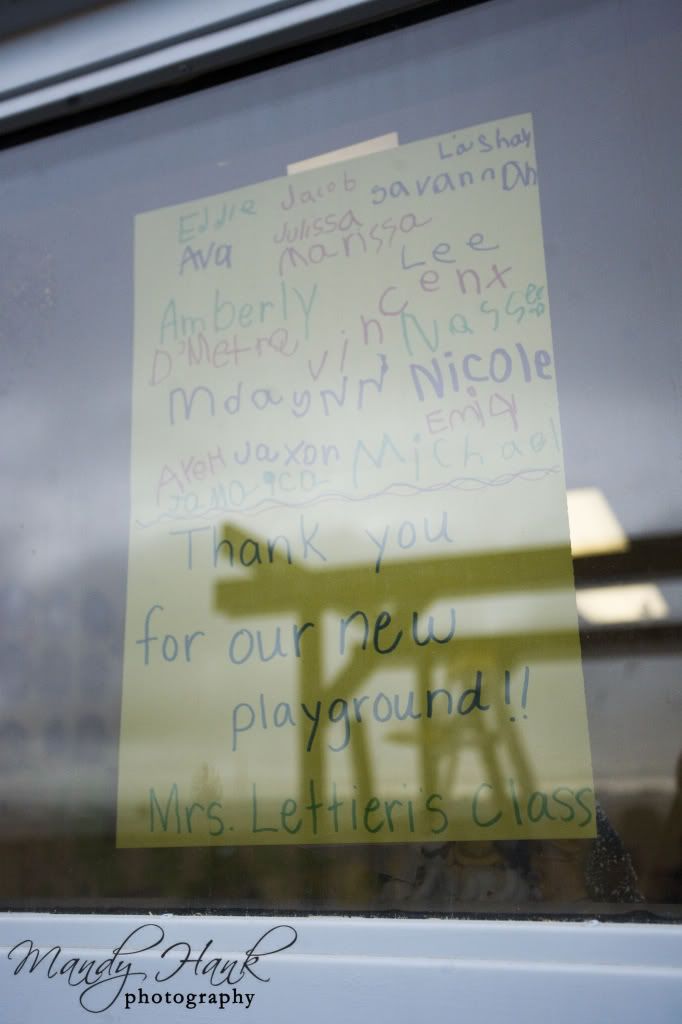 LaShay
Eddie Jacob savannah
Ava Julissa
Marissa Lee
Amberly Vincenx
D'Metra Nassee
Mdaynn Nicole
Emily
Jaxon Michael
Jamaica
Thank you
for our new
playground!!
Mrs. Lettieri's Class
Mandy Hank
photography